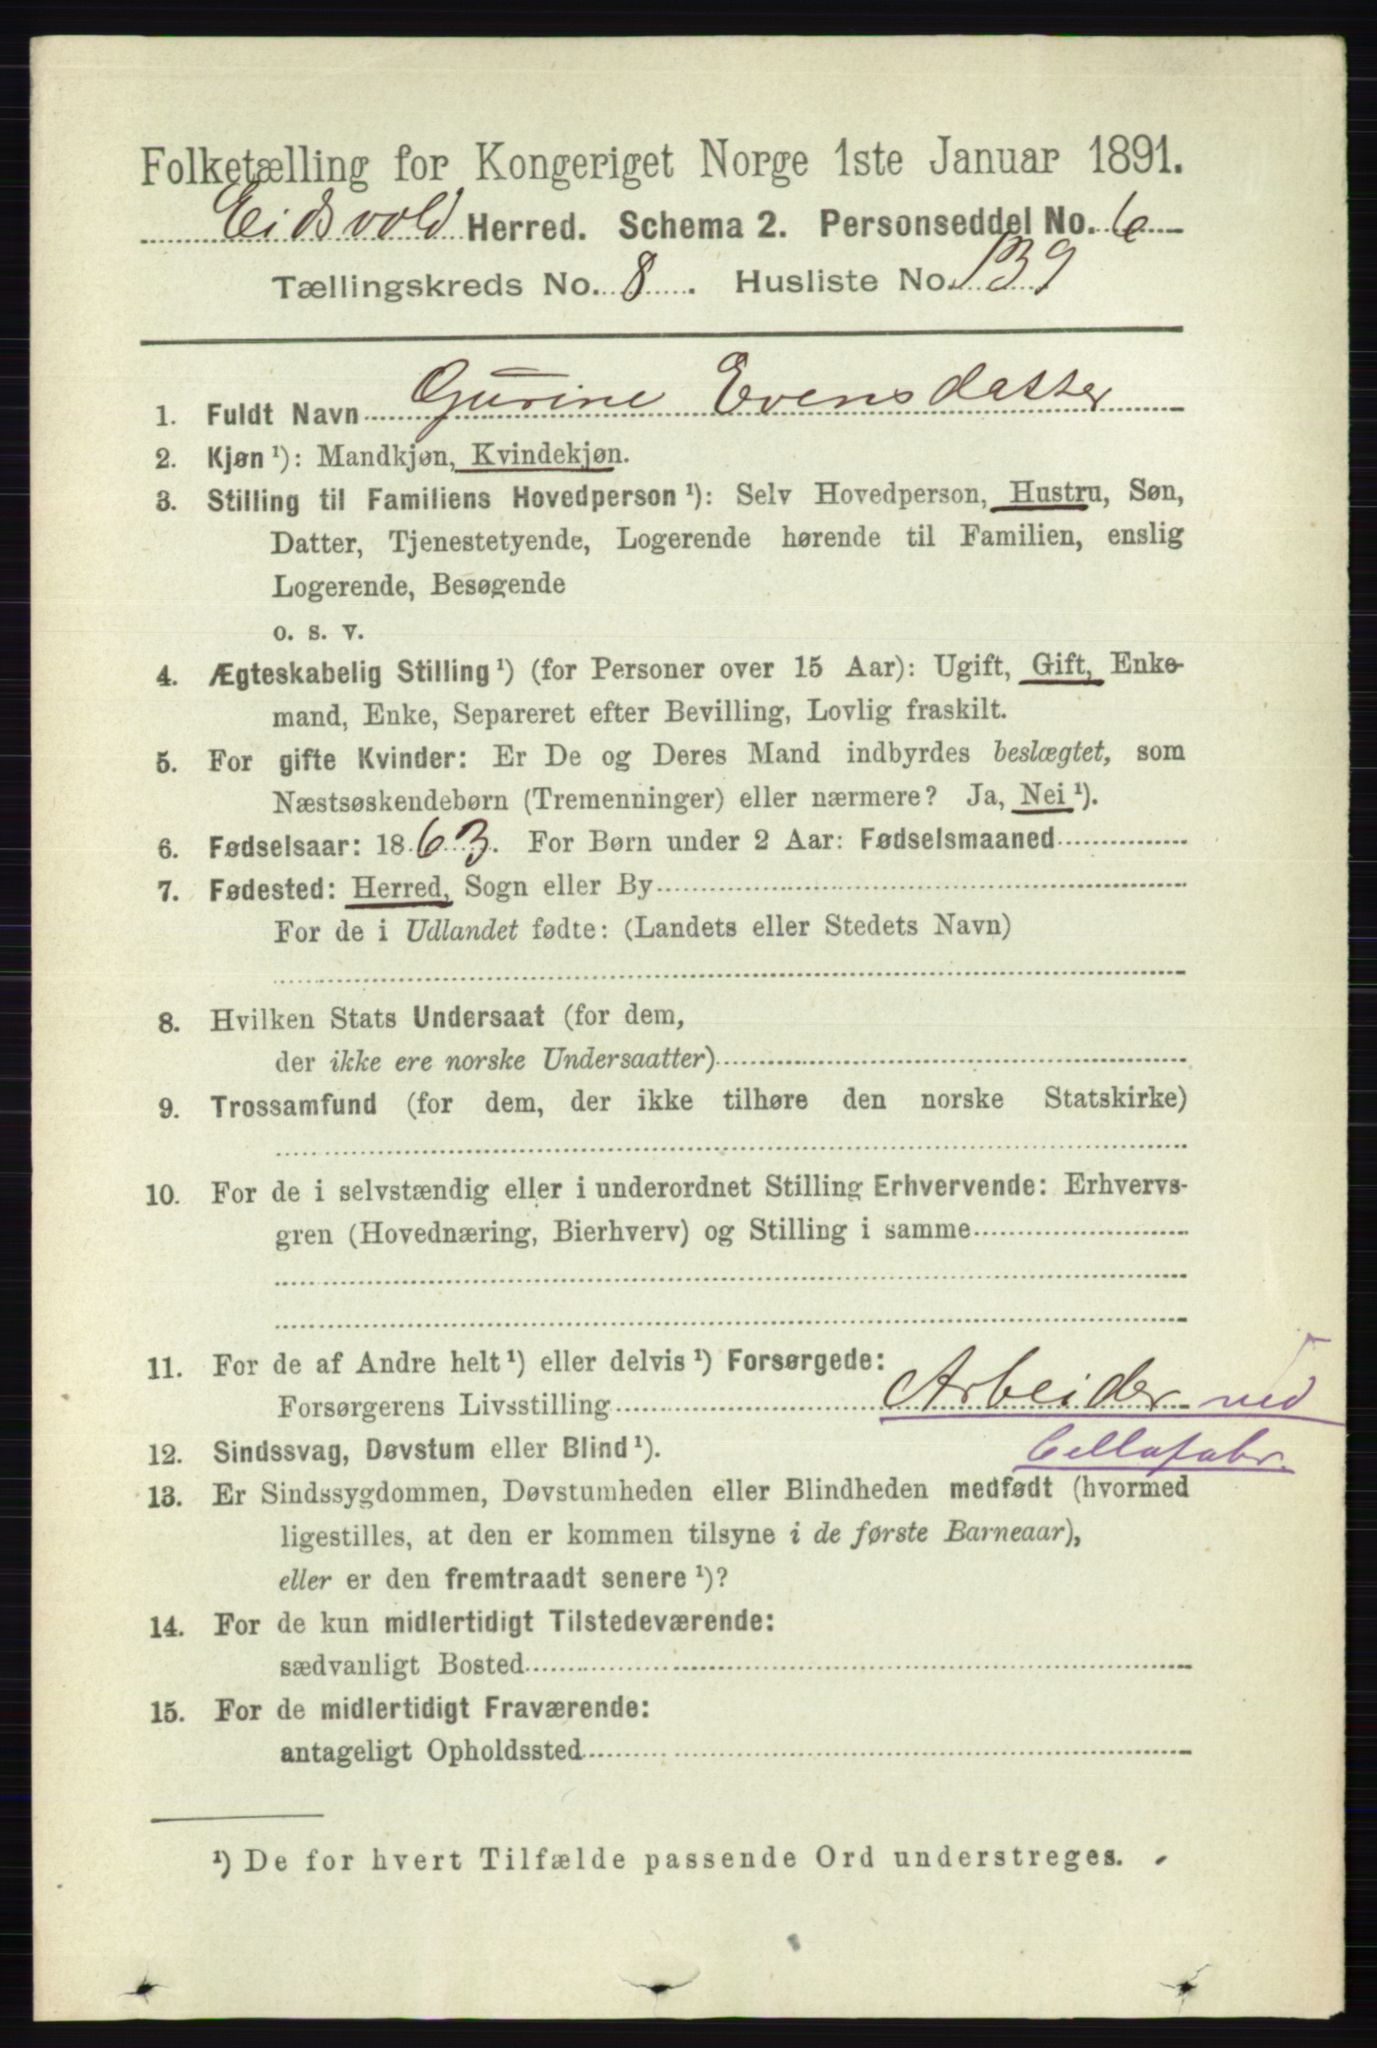 Folketælling for Kongeriget Norge 1ste Januar 1891.
Eidsvold Herred. Schema 2. Personseddel No. 6
Tællingskreds No. 8. Husliste No. 139
1. Fuldt Navn Gurine Evensdatter
2. Kjøn ¹): Mandkjøn, Kvindekjøn.
3. Stilling til Familiens Hovedperson ¹): Selv Hovedperson, Hustru, Søn,
Datter, Tjenestetyende, Logerende hørende til Familien, enslig
Logerende, Besøgende
o. s. v.
4. Ægteskabelig Stilling ¹) (for Personer over 15 Aar): Ugift, Gift, Enke-
mand, Enke, Separeret efter Bevilling, Lovlig fraskilt.
5. For gifte Kvinder: Er De og Deres Mand indbyrdes beslægtet, som
Næstsøskendebørn (Tremenninger) eller nærmere? Ja, Nei ¹).
6. Fødselsaar: 1863. For Børn under 2 Aar: Fødselsmaaned
7. Fødested: Herred, Sogn eller By
For de i Udlandet fødte: (Landets eller Stedets Navn)
8. Hvilken Stats Undersaat (for dem,
der ikke ere norske Undersaatter)
9. Trossamfund (for dem, der ikke tilhøre den norske Statskirke)
10. For de i selvstændig eller i underordnet Stilling Erhvervende: Erhvervs-
gren (Hovednæring, Bierhverv) og Stilling i samme
11. For de af Andre helt ¹) eller delvis ¹) Forsørgede:
Forsørgerens Livsstilling Arbeider ved
Cellufabr.
12. Sindssvag, Døvstum eller Blind ¹).
13. Er Sindssygdommen, Døvstumheden eller Blindheden medfødt (hvormed
ligestilles, at den er kommen tilsyne i de første Barneaar),
eller er den fremtraadt senere ¹)?
14. For de kun midlertidigt Tilstedeværende:
sædvanligt Bosted
15. For de midlertidigt Fraværende:
antageligt Opholdssted
¹) De for hvert Tilfælde passende Ord understreges.